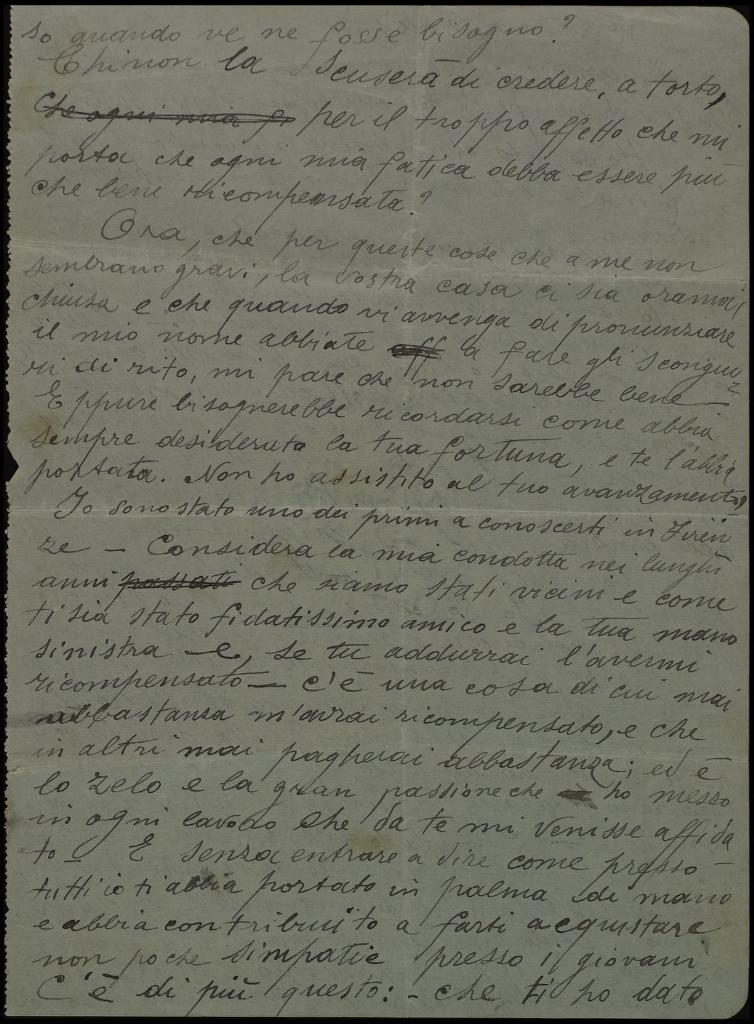 so quando ve ne fosse bisogno?
Chi non la scuserà di credere, a torto,
che ogni mia f. per il troppo affetto che mi
porta che ogni mia fatica debba essere più
che bene ricompensata?
Ora, che per queste cose che a me non
sembrano gravi, la vostra casa ci sia oramai
chiusa e che quando vi avvenga di pronunziare
il mio nome abbiate aff a fare gli scongiu=
ri di rito, mi pare che non sarebbe bene —
Eppure bisognerebbe ricordarsi come abbia
sempre desiderata la tua fortuna, e te l'abbia
portata. Non ho assistito al tuo avanzamento?
Io sono stato uno dei primi a conoscerti in Firen
ze — Considera la mia condotta nei lunghi
anni passati che siamo stati vicini e come
ti sia stato fidatissimo amico e la tua mano
sinistra — e, se tu addurrai l'avermi
ricompensato — c'è una cosa di cui mai
abbastanza m'avrai ricompensato, e che
in altri mai pagherai abbastanza; ed è
lo zelo e la gran passione che ho messo
in ogni lavoro che da te mi venisse affida
to — E senza entrare a dire come presso
tutti io ti abbia portato in palma di mano
e abbia contribuito a farti acquistare
non poche simpatie presso i giovani
C'è di più questo: - che ti ho dato